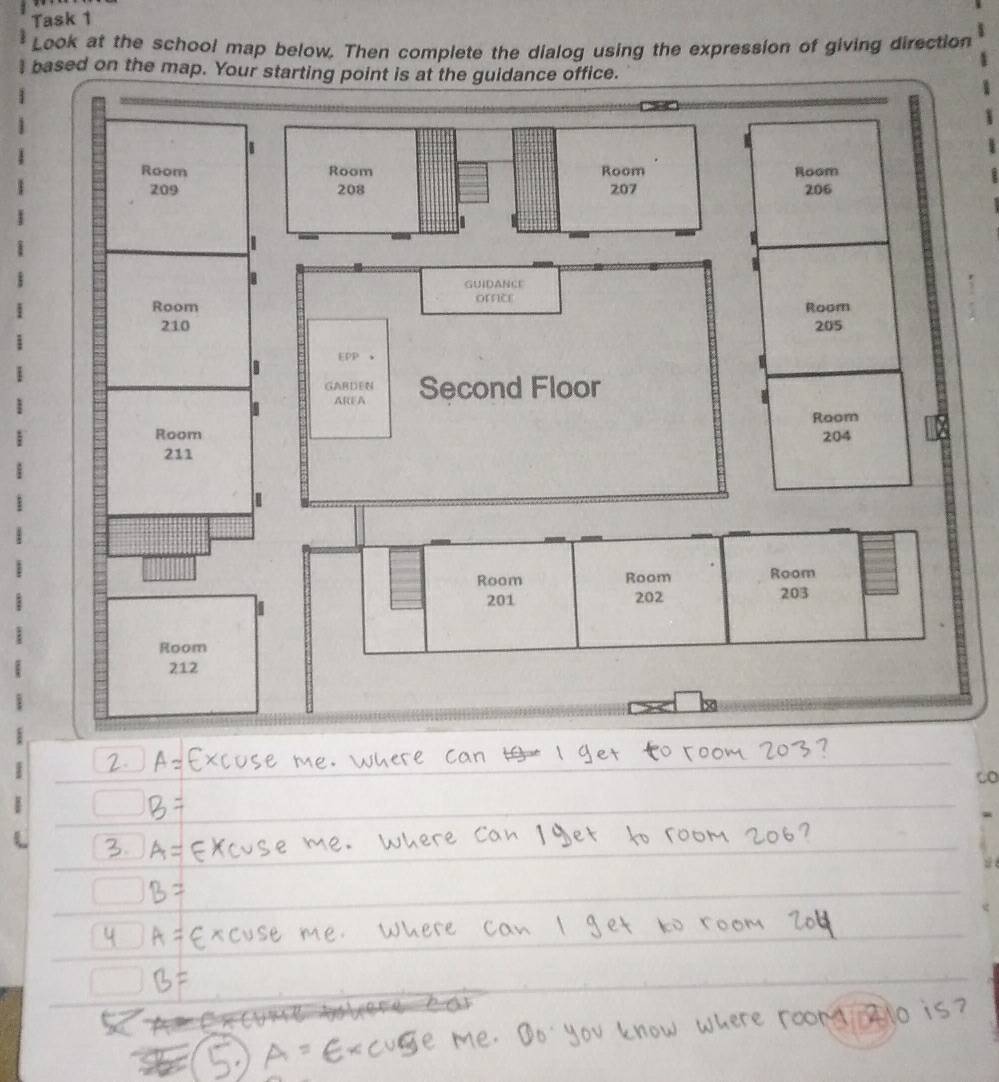 Task 1
Look at the school map below. Then complete the dialog using the expression of giving direction
based on the map. Your starting point is at the guidance office.
Room
209
Room
208
Room
207
Room
206
Room
210
GUIDANCE
OFFICE
Room
205
EPP
GARDEN
AREA
Second Floor
Room
211
Room
204
Room
201
Room
202
Room
203
Room
212
2. A= Excuse me. Where can I get to room 203?
B=
3. A= Excuse me. Where can I get to room 206?
B=
4 A= Excuse me. Where can I get to room 204
B=
5.) A= Excuse me. Do you know where room 210 is?